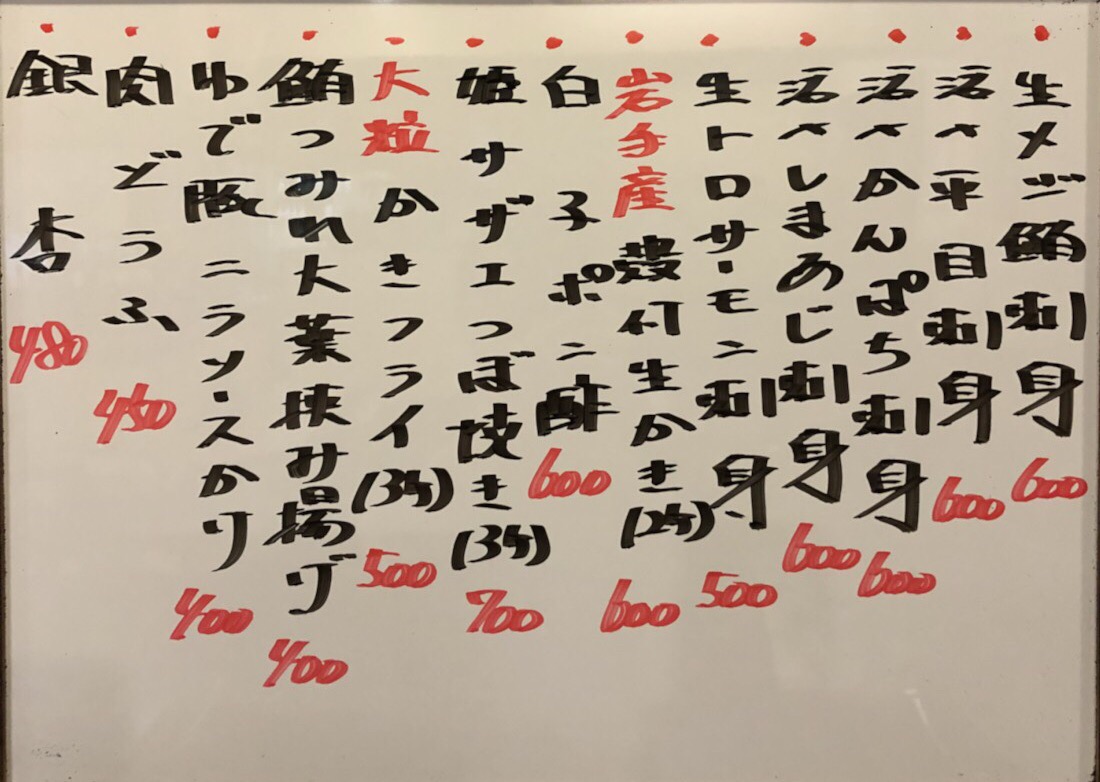 生メジ鮪刺身 600
活〆平目刺身 600
活〆かんぱち刺身 600
活〆しまあじ刺身 600
生トロサーモン刺身 500
岩手産殻付生かき(2ヶ) 600
白子ポン酢 600
姫サザエつぼ焼き(3ヶ) 700
大粒かきフライ(3ヶ) 500
鮪つみれ大葉挟み揚げ 400
ゆで豚ニラソースかけ 400
肉どうふ 450
銀杏 480